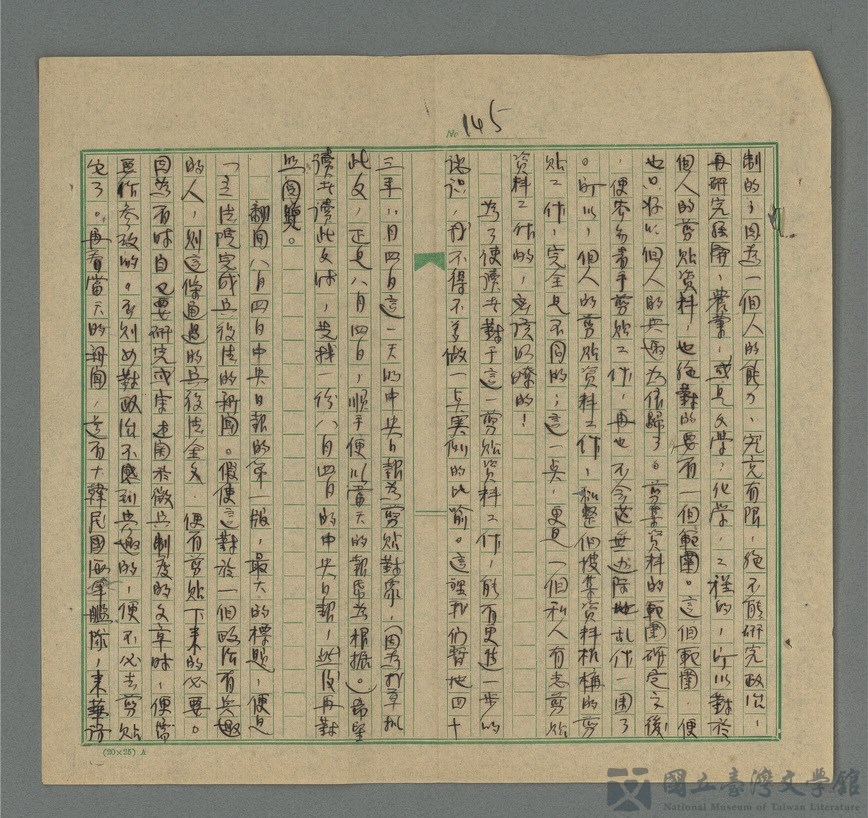 No 145
制的，因為一個人的能力，究竟有限，絕不能研究政治，
再研究經濟，農業，或是文學，化學，工程的，所以對於
個人的剪貼資料，也絕對的要有一個範圍。這個範圍，便
也只好以個人的興趣為依歸了。剪集資料的範圍研定之後
，便容易著手剪貼工作，再也不會茫無邊際地亂作一團了
。所以，個人的剪貼資料工作，和整個搜集資料機構的剪
貼工作，完全是不同的，這一點，更是一個私人有志剪貼
資料工作的，應該明瞭的！
為了使讀者對于這一剪貼資料工作，能有更進一步的
認識，我不得不多做一点实例的比喻。這裡我們暫地四十
三年八月四日這一天的中央日報為剪貼對象，（因為我草擬
此文，正是八月四日，順手便以當天的報紙為根據。）希望
讀者讀此文時，先找一份八月四日的中央日報，然後再對
照閱覽。
翻閱八月四日中央日報的第一版，最大的標題，便是
「立法院完成兵役法的新聞。假使這對於一個政治有興趣
的人，則這條通過的兵役法全文，便有剪貼下來的必要。
因為有時自己要研究或寫述關於徵兵制度的文章時，便當
要作參考的。否則如對政治不感到興趣的，便不必去剪貼
它了。再看當天的新聞，還有大韓民國海軍艦隊，來華訪
(20×25) A
國立臺灣文學館
National Museum of Taiwan Literature